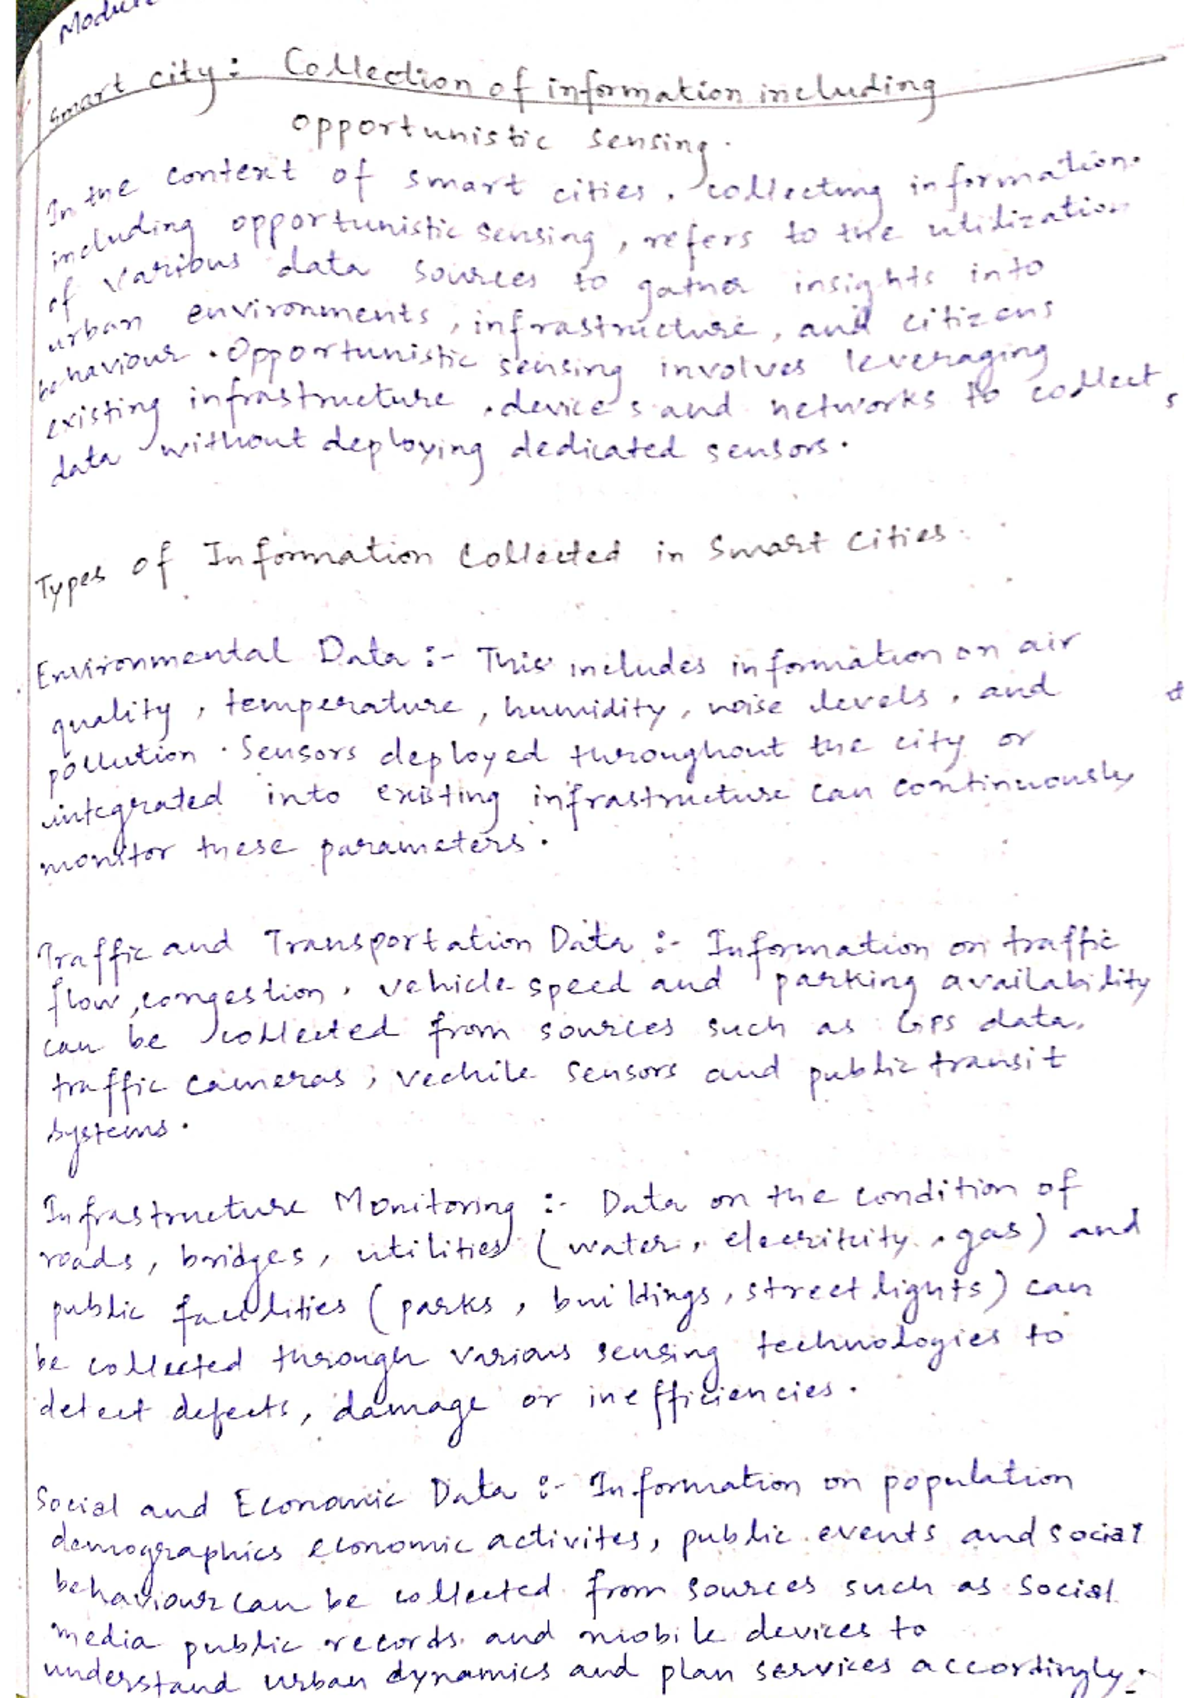 Smart city: Collection of information including
opportunistic sensing.
In the context of smart cities, collecting information.
including opportunistic sensing, refers to the utilization
of various data sources to gather insights into
urban environments, infrastructure, and citizens
behaviour. Opportunistic sensing involves leveraging
existing infrastructure, devices and networks to collect
data without deploying dedicated sensors.
Types of Information Collected in Smart Cities.
Environmental Data :- This includes information on air
quality, temperature, humidity, noise levels, and
pollution. Sensors deployed throughout the city or
integrated into existing infrastructure can continuously
monitor these parameters.
Traffic and Transportation Data :- Information on traffic
flow, congestion, vehicle speed and parking availability
can be collected from sources such as GPS data,
traffic cameras, vechile sensors and public transit
systems.
Infrastructure Monitoring :- Data on the condition of
roads, bridges, utilities (water, elecritcity, gas) and
public facilities (parks, buildings, street lights) can
be collected through various sensing technologies to
detect defects, damage or inefficiencies.
Social and Economic Data :- Information on population
demographics economic activites, public events and social
behaviour can be collected from sources such as social
media public records. and mobile devices to
understand urban dynamics and plan services accordingly.